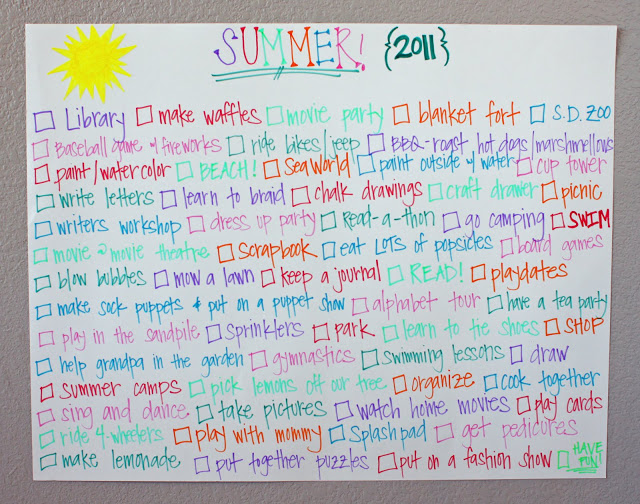 SUMMER! {2011}
☐ Library ☐ make waffles ☐ movie party ☐ blanket fort ☐ S.D. ZOO
☐ Baseball game w/ fireworks ☐ ride bikes/jeep ☐ BBQ-roast hot dogs/marshmellows
☐ paint/watercolor ☐ BEACH! ☐ Sea World ☐ paint outside w/ water ☐ cup tower
☐ write letters ☐ learn to braid ☐ chalk drawings ☐ craft drawer ☐ picnic
☐ writers workshop ☐ dress up party ☐ Read-a-thon ☐ go camping ☐ SWIM
☐ movie @ movie theatre ☐ Scrapbook ☐ eat LOTS of popsicles ☐ board games
☐ blow bubbles ☐ mow a lawn ☐ keep a journal ☐ READ! ☐ playdates
☐ make sock puppets & put on a puppet show ☐ alphabet tour ☐ have a tea party
☐ play in the sandpile ☐ Sprinklers ☐ park ☐ learn to tie shoes ☐ SHOP
☐ help grandpa in the garden ☐ gymnastics ☐ Swimming lessons ☐ draw
☐ summer camps ☐ pick lemons off our tree ☐ organize ☐ cook together
☐ sing and dance ☐ take pictures ☐ watch home movies ☐ play cards
☐ ride 4-wheelers ☐ play with mommy ☐ Splash pad ☐ get pedicures
☐ make lemonade ☐ put together puzzles ☐ put on a fashion show ☐ HAVE FUN!